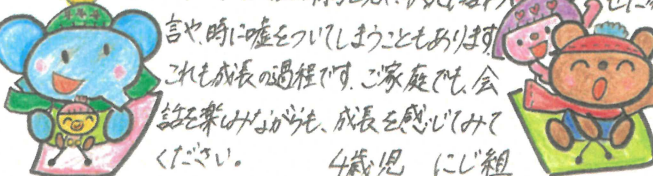 言や、時に嘘をついてしまうこともあります。
これも成長の過程です。ご家庭でも、会
話を楽しみながらも、成長を感じてみて
ください。 4歳児 にじ組